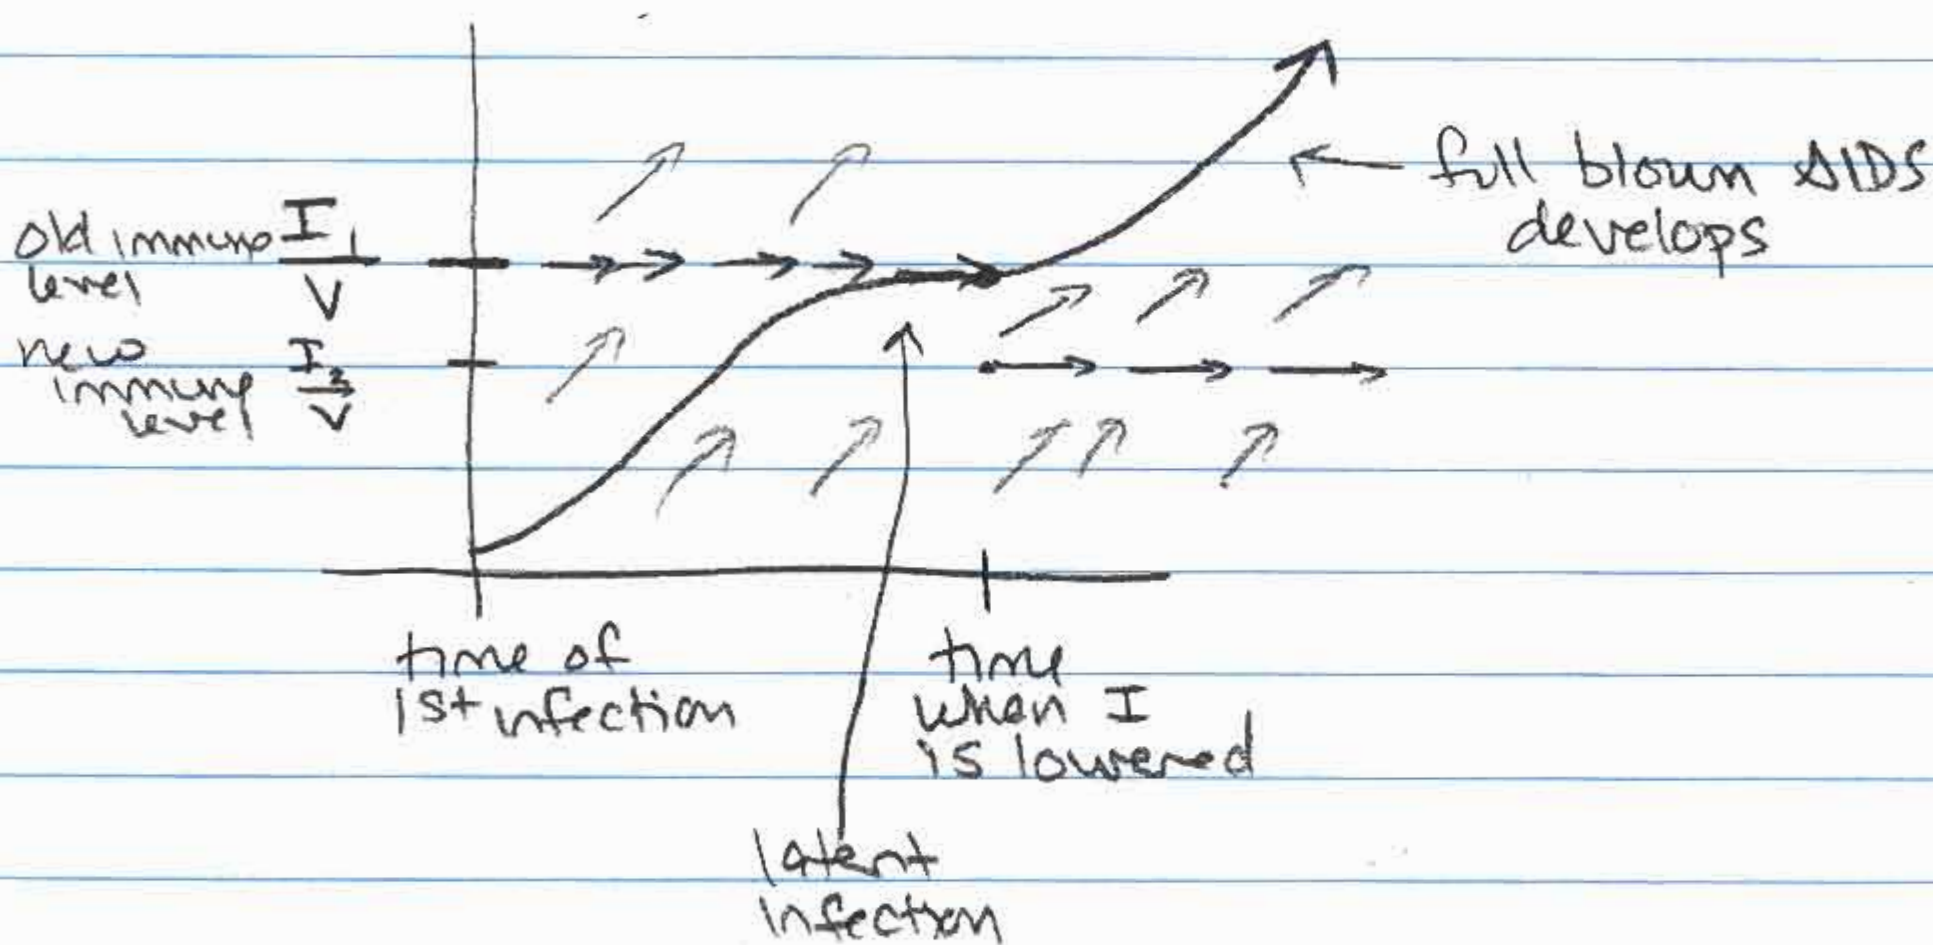 full blown AIDS
develops
old immune I₁/V
level
new I₂/V
immune
level
time of
1st infection
time
when I
is lowered
latent
infection